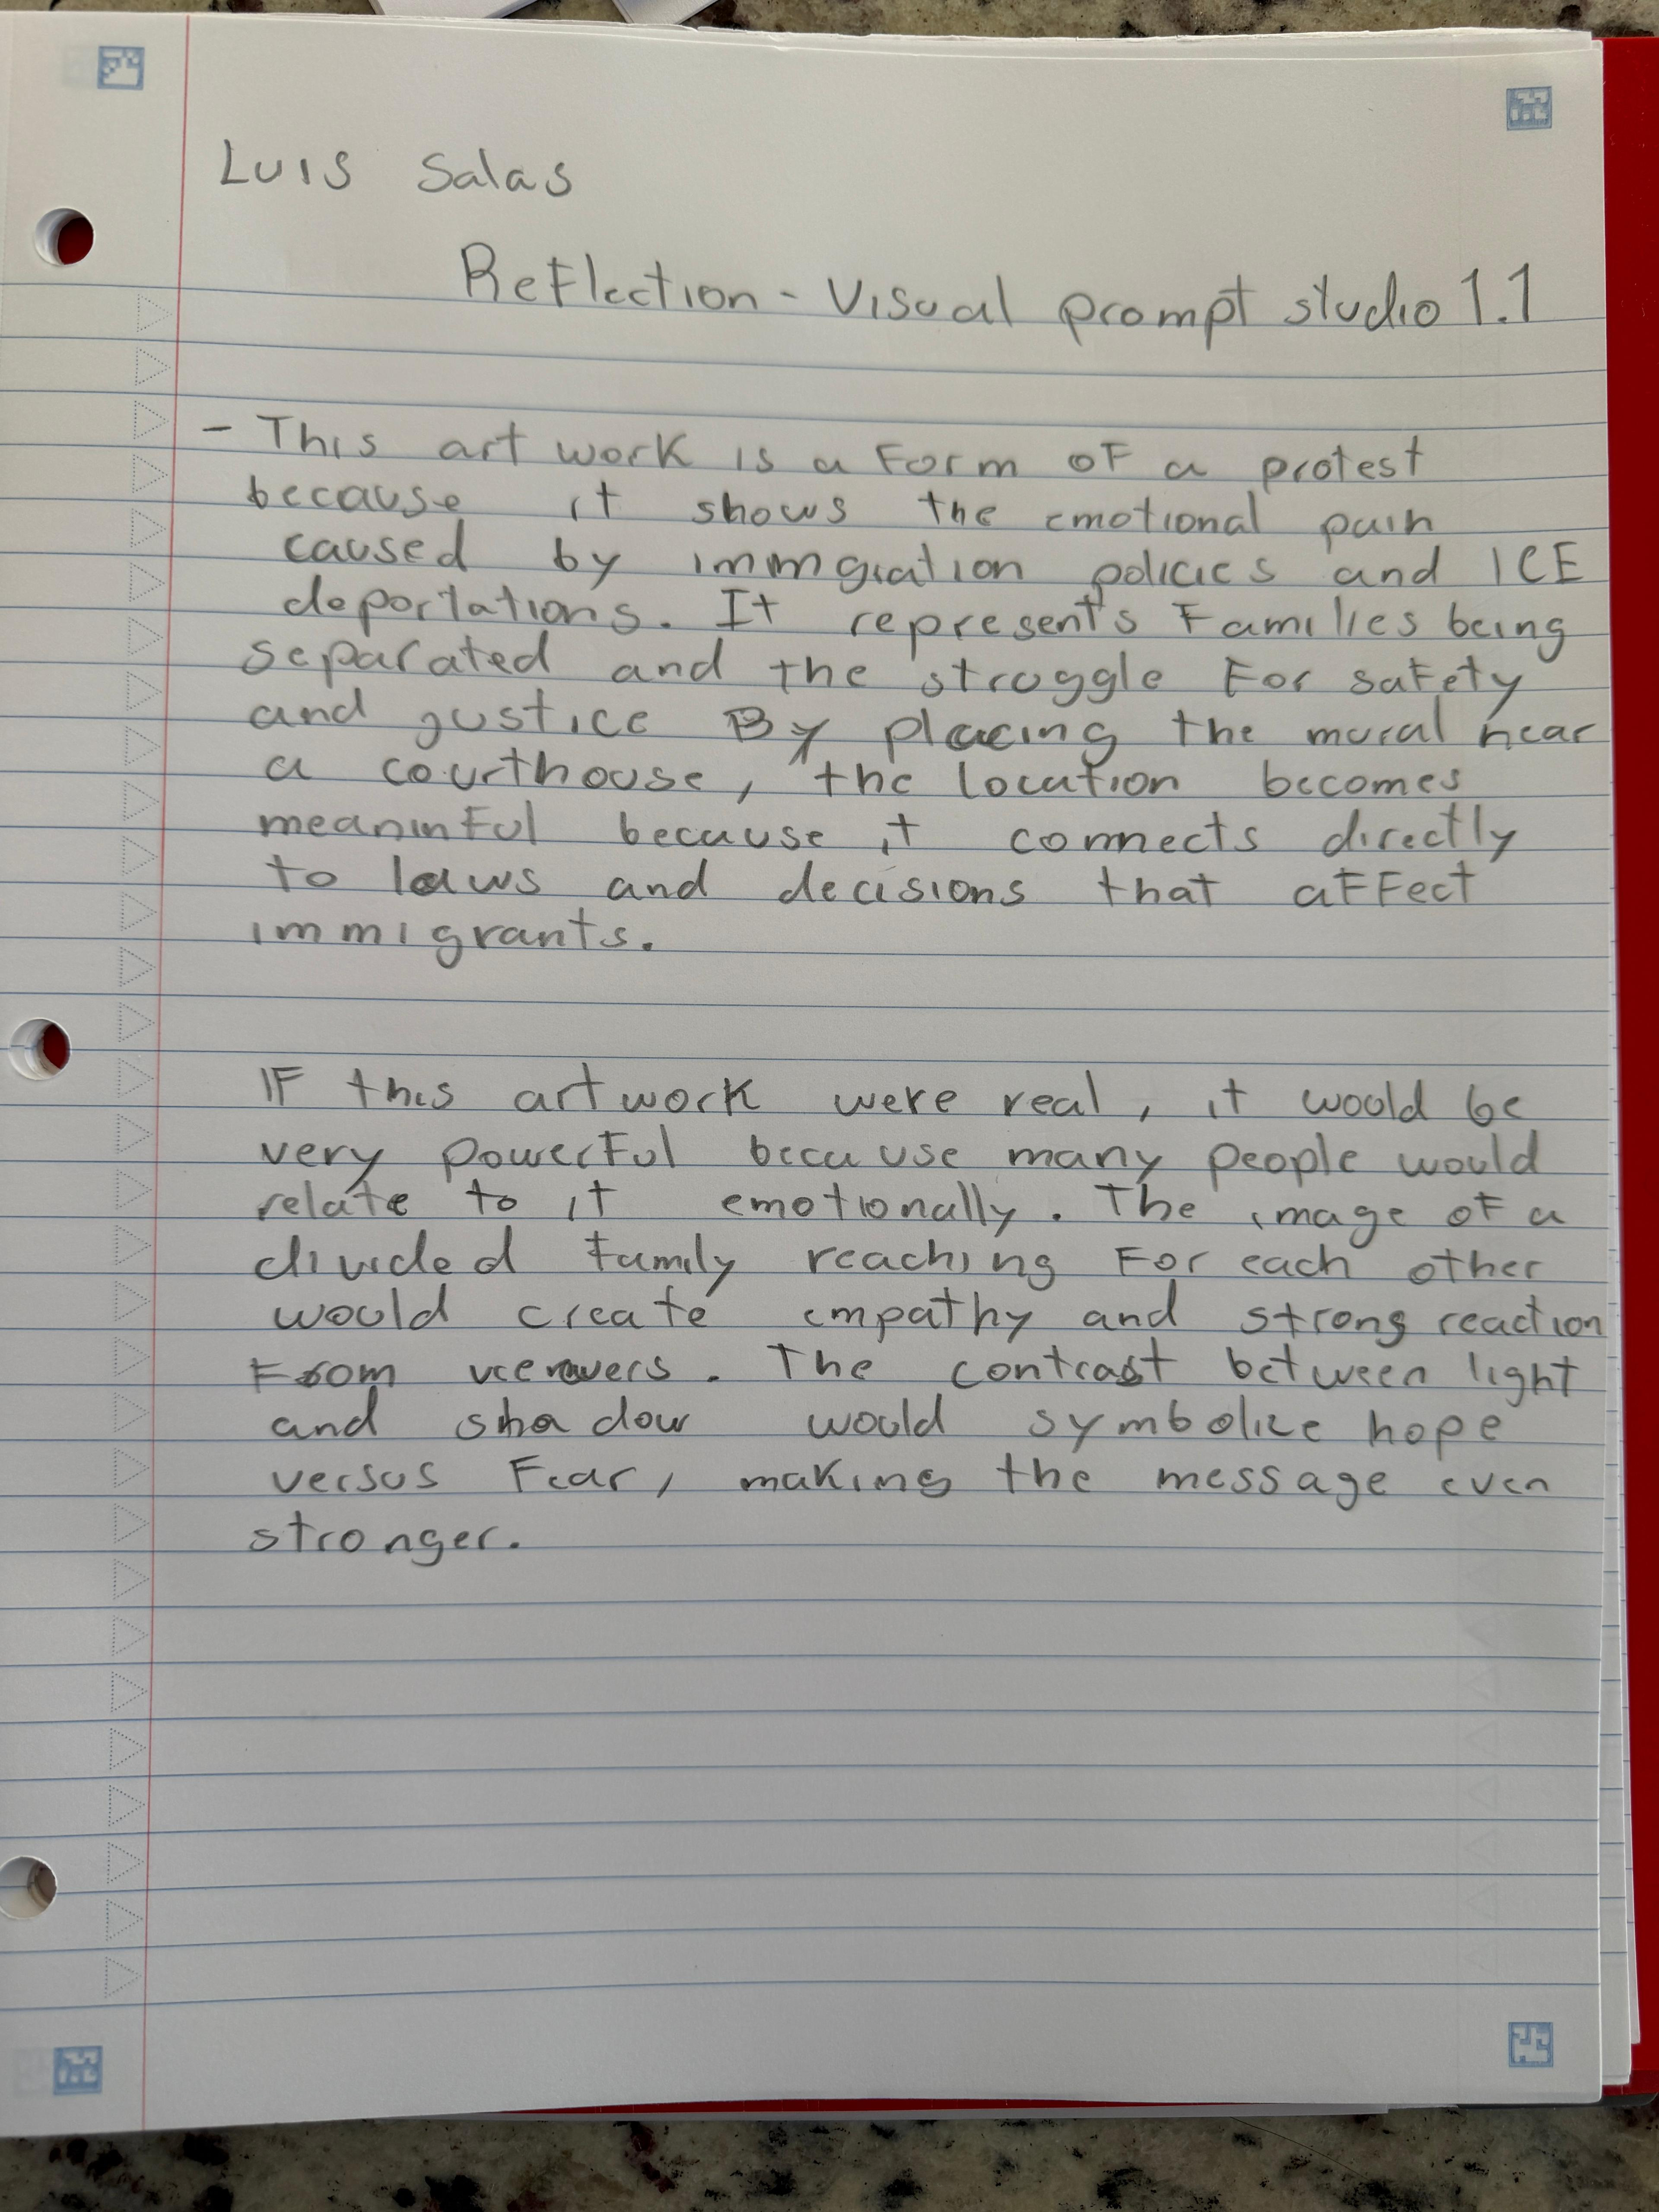 Luis Salas
Reflection - Visual prompt studio 1.1
- This art work is a form of a protest
because it shows the emotional pain
caused by immgration policies and ICE
deportations. It represents families being
separated and the struggle for safety
and justice By placing the mural near
a courthouse, the location becomes
meaninful because it connects directly
to laws and decisions that affect
immigrants.
If this artwork were real, it would be
very powerful because many people would
relate to it emotionally. The image of a
divided family reaching for each other
would create empathy and strong reaction
From . The contrast between light
and shadow would symbolize hope
versus Fear, making the message even
stronger.